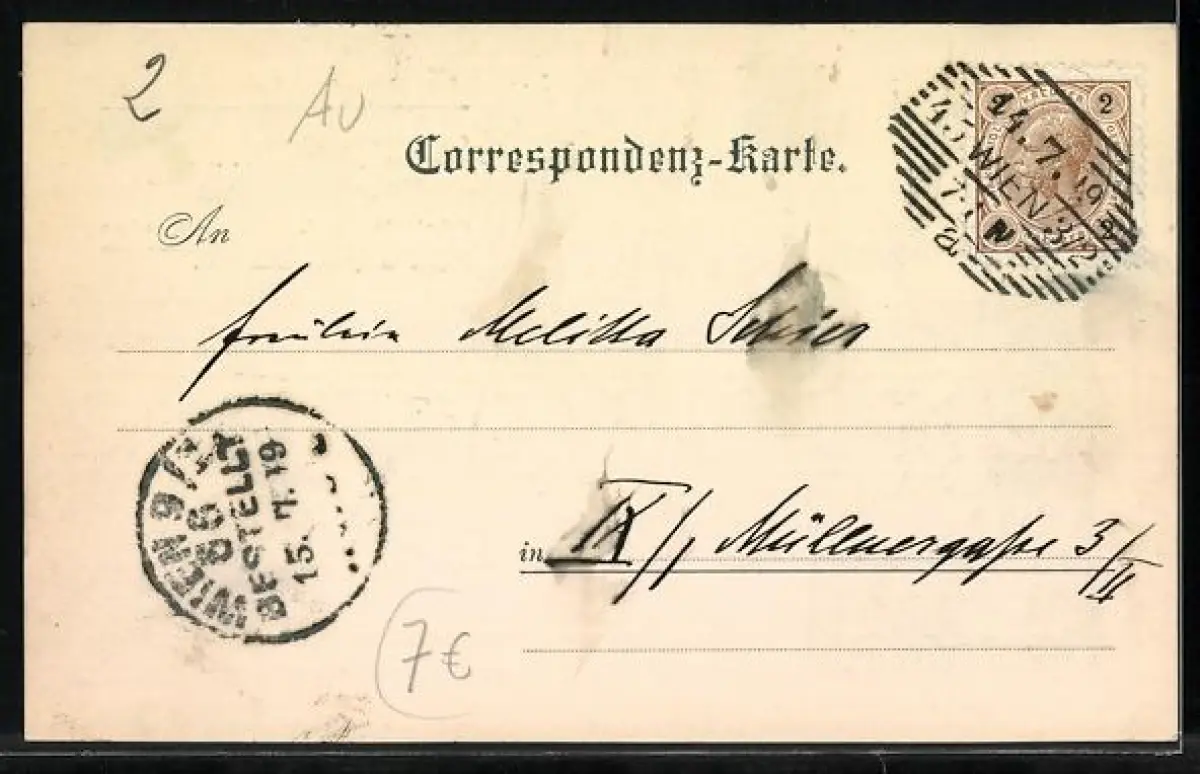 2
AU
Correspondenz-Karte.
2 2
14.7.19
WIEN 3/2
An
Fräulein Melitta
WIEN 9
66
BESTELLT
15. 7. 19
in IX/1 Müllnergasse 3/II
7€